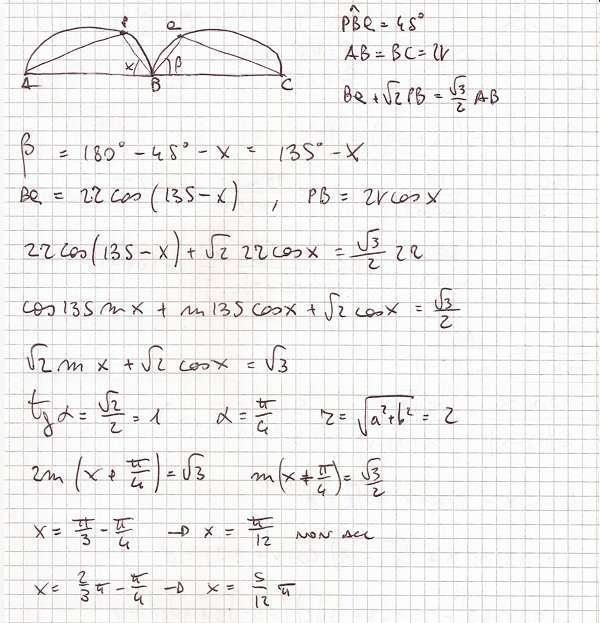 P Q
x β
A B C
PB̂Q = 45°
AB = BC = 2r
BQ + √2 PB = √3/2 AB
β = 180° - 45° - x = 135° - x
BQ = 2r cos(135-x) , PB = 2r cos x
2r cos(135-x) + √2 2r cos x = √3/2 2r
cos 135 m x + m 135 cos x + √2 cos x = √3/2
√2 m x + √2 cos x = √3
tg α = √2/2 = 1 α = π/4 r = √a²+b² = 2
2m (x + π/4) = √3 m(x + π/4) = √3/2
x = π/3 - π/4 → x = π/12 NON ACC
x = 2/3 π - π/4 → x = 5/12 π